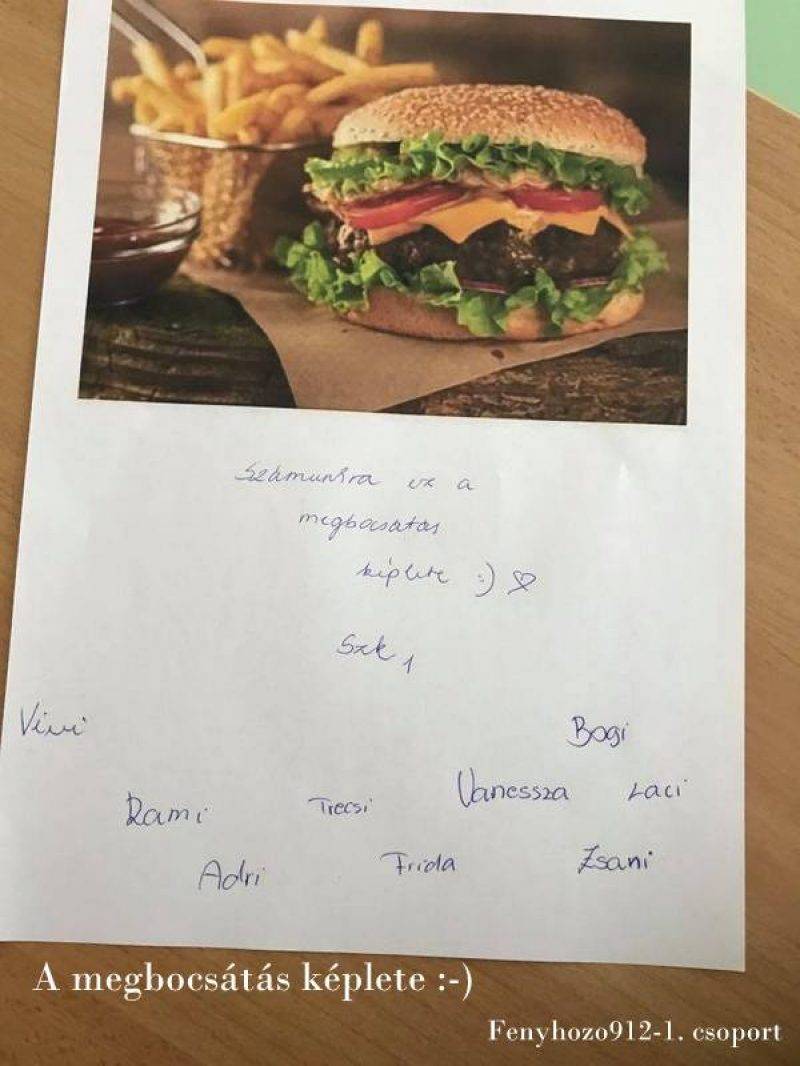 Számunkra ez a
megbocsátás
képlete :) ♡
Szk,
Vivi
Bogi
Rami Trecsi Vanessza Laci
Adri Frida Zsani
A megbocsátás képlete :-)
Fenyhozo912-1. csoport